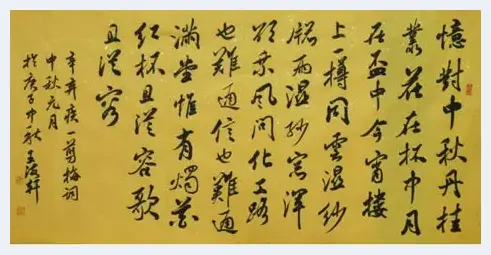 憶對中秋丹桂
叢花在杯中月
在盃中今宵樓
上一樽同雲湿紗
牕雨湿紗窓渾
欲乘風問化工路
也難通信也難通
滿堂惟有燭花
红杯且從容歌
且從容
辛弃疾一剪梅词
中秋元月
於庚子中秋王